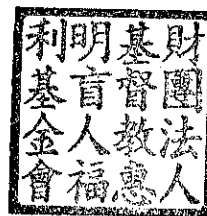 財團法人
基督教惠
明盲人福
利基金會